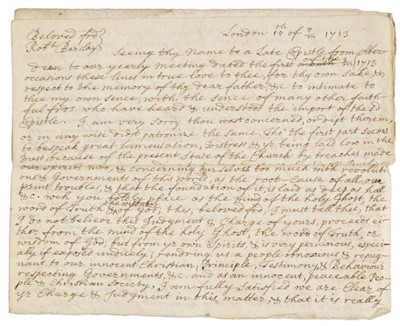 London 10th of 2/m 1713
Beloved frd
Robt Barclay
Seeing thy Name to a Late Epistle from Aber-
deen to our yearly meeting dated the first 2m 1713
occasions these lines in true love to thee, for thy own sake &
respect to the memory of thy dear father, & to intimate to
thee my own sence, with the sence of many other faith-
ful frds who have heard & understood the import of the sd
Epistle. I am very sorry thou wast concerned, or dipt therein,
or in any wise didst patronise the same. Tho' the first part seems
to bespeak great lamentation, distress & yr being laid low in the
Dust, because of the present State of the Church by breaches made
our spirit, not & concerning our selves too much with revoluti-
ons & Governments of this world, as the root & Cause of all our
present troubles, & that the foundation of it, is laid as deep as hell
&c. wch you to be as the mind of the Holy Ghost, the
word of truth, & of this, beloved frd, I must tell thee, that
I do not believe this Judgment & Charge of yours, proceeds ei-
ther from the mind of the holy Ghost, the word of truth, or
wisdom of God, but from yr own Spirits, & is very pernicious, especi-
ally if exposed unwisely; rendring us a people obnoxious & repug-
nant to our innocent Christian Principle, Testimony & Behaviour
respecting Governments, &c. and as an innocent, peaceable Peo-
ple & Christian Society; I am fully satisfied we are Clear of
yr Charge & Judgment in this matter, & that it is really